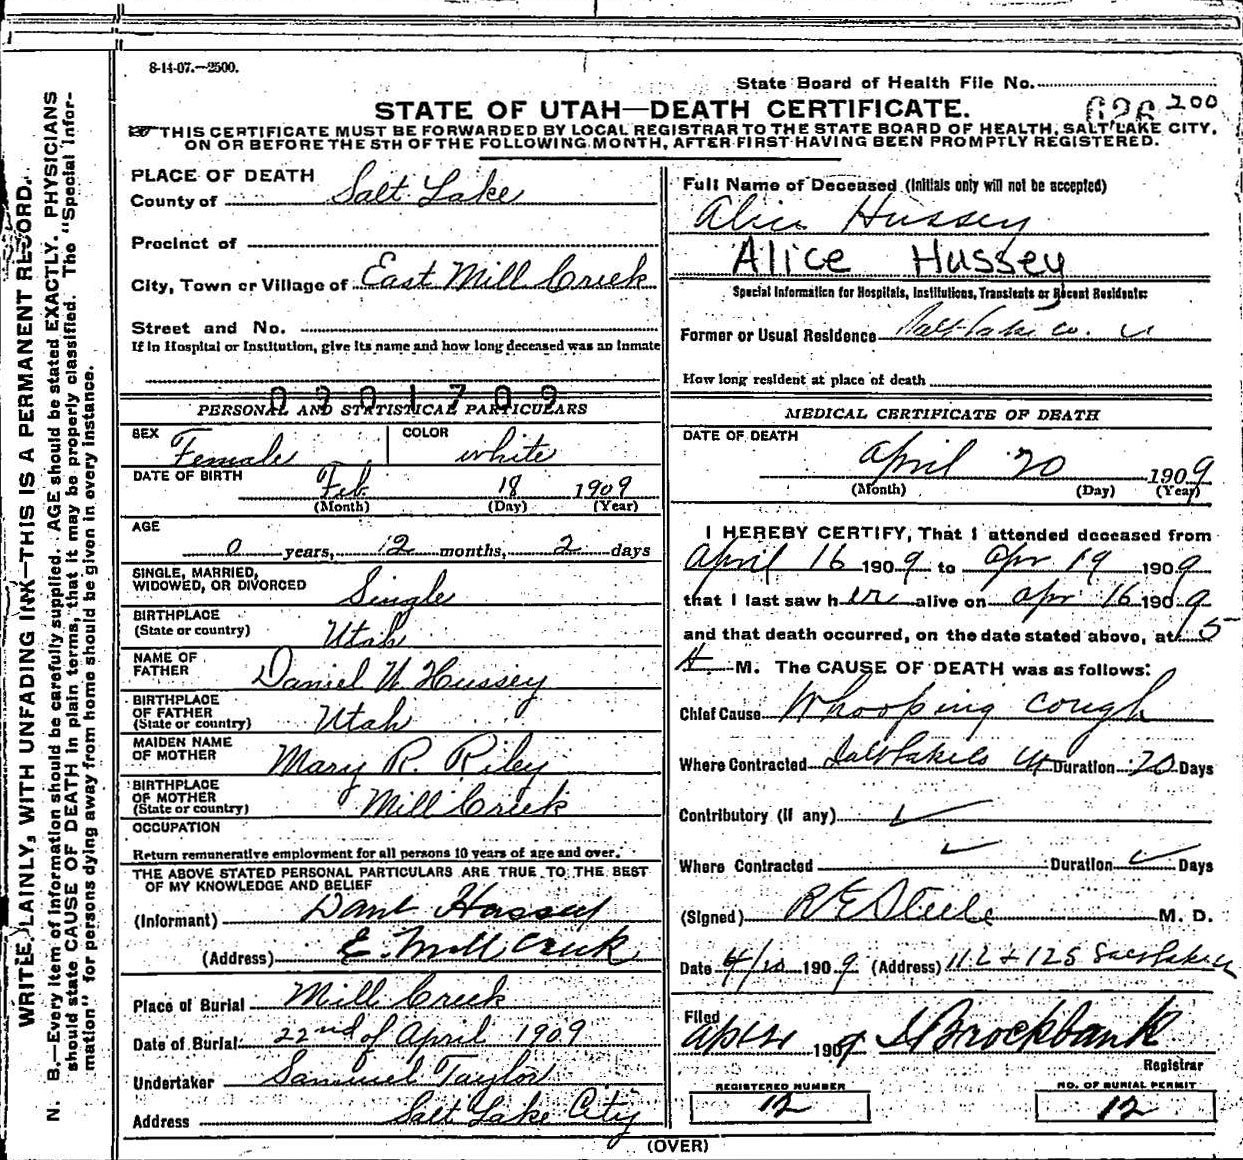 8-14-07.—2500.
State Board of Health File No.
STATE OF UTAH—DEATH CERTIFICATE.
626 200
THIS CERTIFICATE MUST BE FORWARDED BY LOCAL REGISTRAR TO THE STATE BOARD OF HEALTH, SALT LAKE CITY,
ON OR BEFORE THE 5TH OF THE FOLLOWING MONTH, AFTER FIRST HAVING BEEN PROMPTLY REGISTERED.
WRITE PLAINLY, WITH UNFADING INK—THIS IS A PERMANENT RECORD.
N. B.—Every item of information should be carefully supplied. AGE should be stated EXACTLY. PHYSICIANS
should state CAUSE OF DEATH in plain terms, that it may be properly classified. The "Special Infor-
mation" for persons dying away from home should be given in every instance.
PLACE OF DEATH
County of Salt Lake
Precinct of
City, Town or Village of East Mill Creek
Street and No.
If in Hospital or Institution, give its name and how long deceased was an inmate
0201709
PERSONAL AND STATISTICAL PARTICULARS
SEX Female COLOR white
DATE OF BIRTH Feb 18 1909
(Month) (Day) (Year)
AGE
0 years, 2 months, 2 days
SINGLE, MARRIED,
WIDOWED, OR DIVORCED Single
BIRTHPLACE
(State or country) Utah
NAME OF
FATHER Daniel W Hussey
BIRTHPLACE
OF FATHER
(State or country) Utah
MAIDEN NAME
OF MOTHER Mary R. Riley
BIRTHPLACE
OF MOTHER
(State or country) Mill Creek
OCCUPATION
Return remunerative employment for all persons 10 years of age and over.
THE ABOVE STATED PERSONAL PARTICULARS ARE TRUE TO THE BEST
OF MY KNOWLEDGE AND BELIEF
(Informant) Danl Hussey
(Address) E. Mill Creek
Place of Burial Mill Creek
Date of Burial 22nd of April 1909
Undertaker Samuel Taylor
Address Salt Lake City
Full Name of Deceased (Initials only will not be accepted)
Alice Hussey
Alice Hussey
Special Information for Hospitals, Institutions, Transients or Recent Residents:
Former or Usual Residence Salt Lake Co. U
How long resident at place of death
MEDICAL CERTIFICATE OF DEATH
DATE OF DEATH
April 20 1909
(Month) (Day) (Year)
I HEREBY CERTIFY, That I attended deceased from
April 16 1909 to Apr 19 1909
that I last saw her alive on Apr 16 1909
and that death occurred, on the date stated above, at 5
A M. The CAUSE OF DEATH was as follows:
Chief Cause Whooping cough
Where Contracted Duration 20 Days
Contributory (if any)
Where Contracted Duration Days
(Signed) R E Steele M. D.
Date 4/20 1909 (Address) 112 & 125 Salt Lake
Filed
1909 Brockbank
Registrar
REGISTERED NUMBER
12
NO. OF BURIAL PERMIT
12
(OVER)